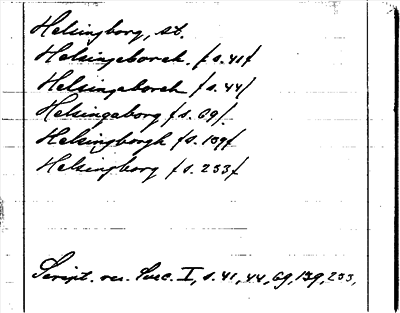 Helsingborg, st.
Helsingeborch. /s. 41/
Helsingeborch /s. 44/
Helsingaborg /s. 69/.
Helsingborgh /s. 139/
Helsingborg /s. 233/
Script. rer. Suec. I, s. 41, 44, 69, 139, 233,